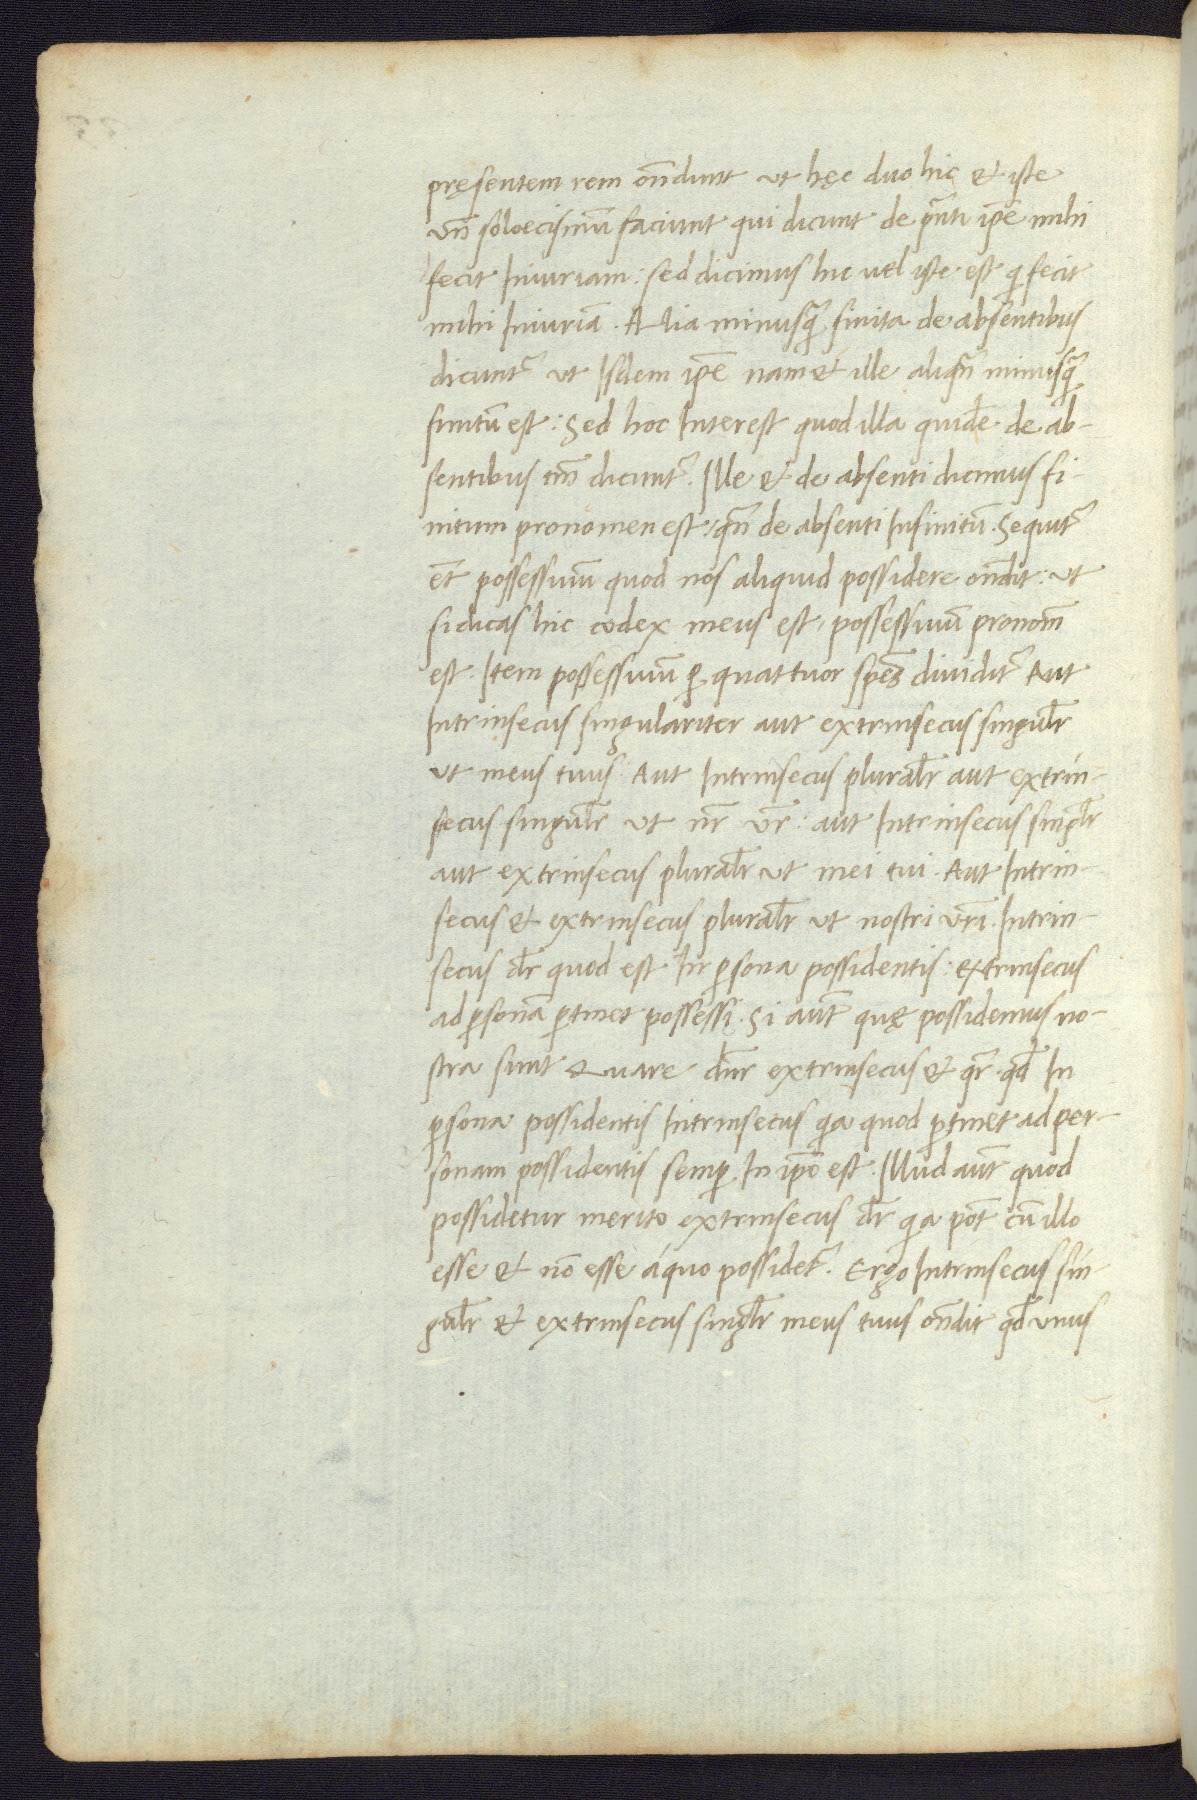 pręsentem rem on̄dunt ut hęc duo hic et iste
un̄ soloecismū faciunt qui dicunt de p̄nti ip̄e mihi
fecit Iniuriam : sed dicimus hic uel iste est q̇ fecit
mihi Iniuriā . Alia minusq̄ finita de absentibus
dicunt᷑ ut Isdem ip̄e nam et ille aliqn̄ minusq̄
finitū est : Sed hoc Interest quod illa quidē de ab-
sentibus tm̄ dicunt᷑ . Ille et de absenti dicimus fi-
nitum pronomen est , qn̄ de absenti Infinitū . Sequit᷑
et̄ possessiuū quod nos aliquid possidere on̄dit : ut
si dicas hic codex meus est , possessiuū pronom̄
est . Item possessiuū ꝑ quattuor spēs diuidit᷑ Aut
Intrinsecus singulariter aut extrinsecus singul̄r
ut meus tuus . Aut Intrinsecus plural̄r aut extrin-
secus singul̄r ut nr̄ ur̄ : aut Intrinsecus singl̄r
aut extrinsecus plural̄r ut mei tui . Aut Intrin-
secus et extrinsecus plural̄r ut nostri ur̄i . Intrin-
secus dr̄ quod est In ꝑsona possidentis : extrinsecus
ad ꝑsonā ꝑtinet possessi . Si aut̄ quę possidemus no-
stra sunt Quare dn̄r extrinsecus et qr̄ qd̄ In
ꝑsona possidentis Intrinsecus q̇a quod ꝑtinet ad per-
sonam possidentis semꝑ In ip̄o est . Illud aut̄ quod
possidetur merito extrinsecus dr̄ q̇a pōt cū illo
esse et nō esse á quo possidet᷑ . Ergo Intrinsecus sin-
gul̄r et extrinsecus singl̄r meus tuus on̄dit qd̄ unus